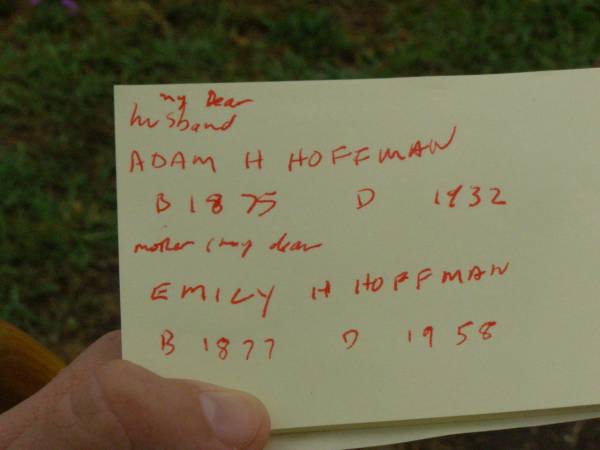 my Dear
husband
ADAM H HOFFMAN
B 1875 D 1932
mother (my dear
EMILY H HOFFMAN
B 1877 D 1958